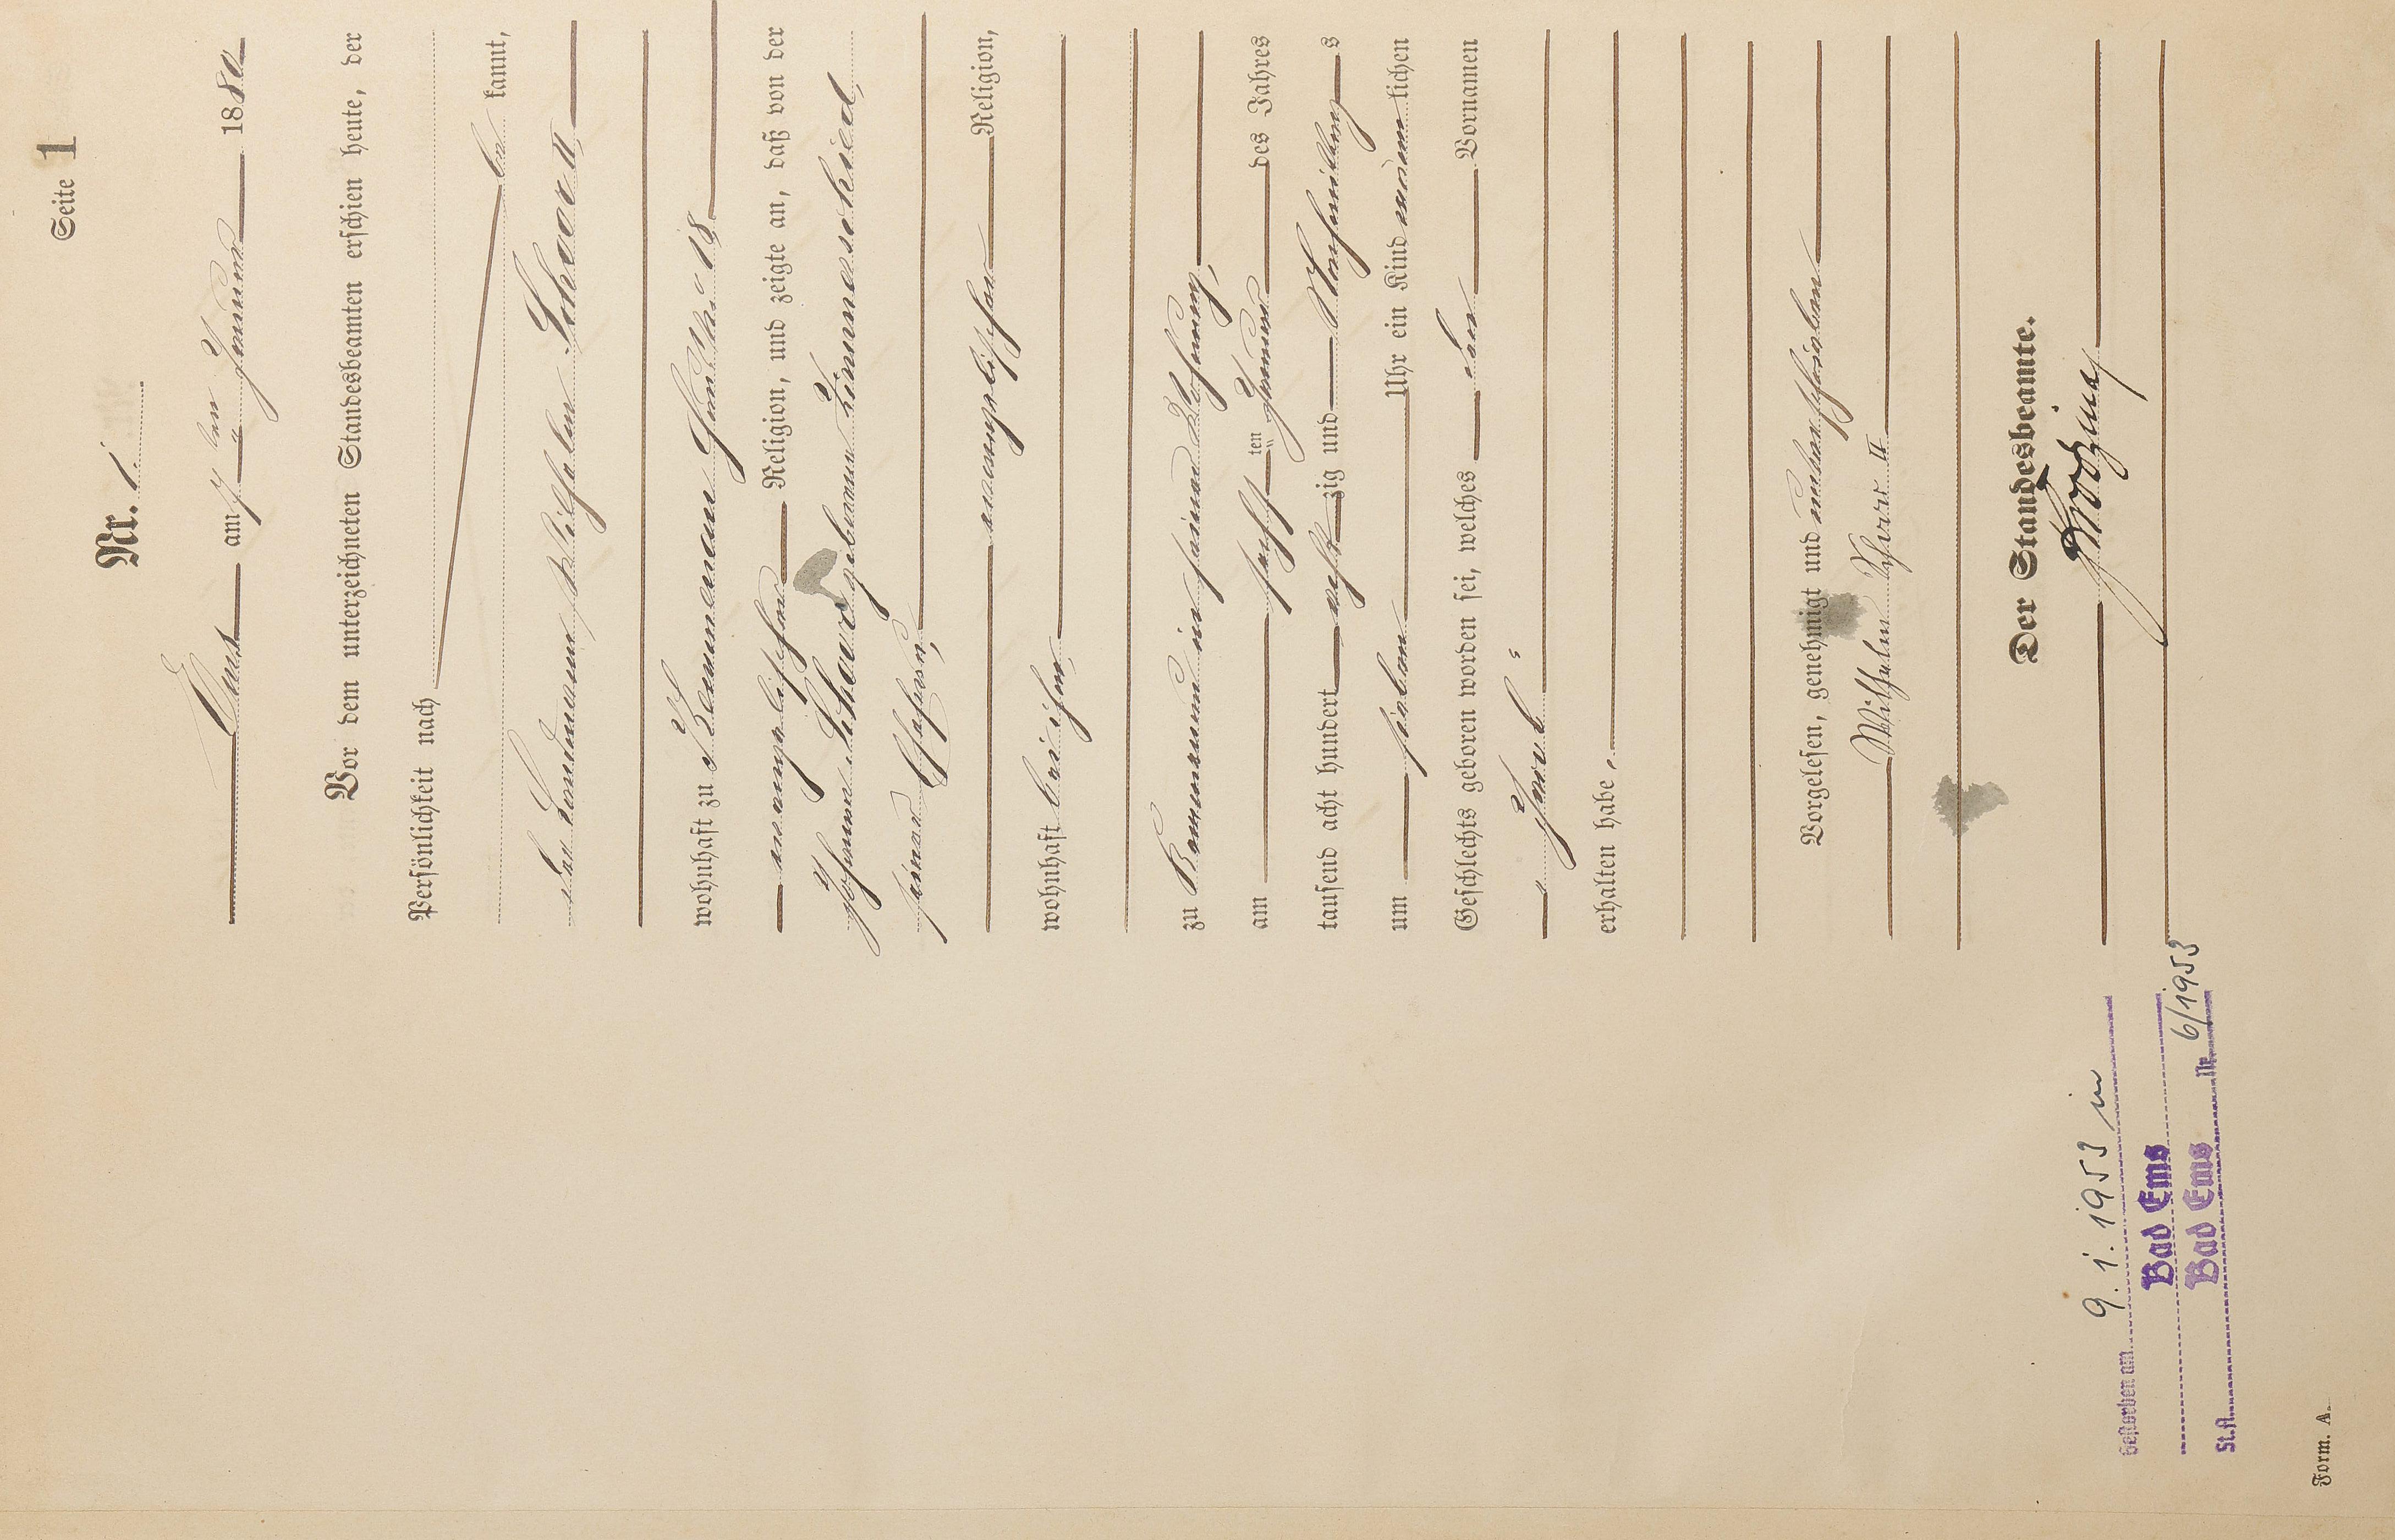 Seite 1
Nr. 1.
Ems am 7ten Januar 1880
Vor dem unterzeichneten Standesbeamten erschien heute, der
Persönlichkeit nach
be kannt,
der Landmann Wilhelm
wohnhaft zu Kemmenau Haus No 18,
evangelischer Religion, und zeigte an, daß von der
Johanna geborene Zimmerschied,
seiner Ehefrau,
evangelischer Religion,
wohnhaft bei ihm,
zu Kemmenau in seiner Wohnung,
am sechsten Januar des Jahres
tausend acht hundert achtzig und Nachmittags
um sieben Uhr ein Kind männlichen
Geschlechts geboren worden sei, welches den Vornamen
erhalten habe.
Vorgelesen, genehmigt und unterschrieben
Wilhelm II
Der Standesbeamte.
Gestorben am 9.1.1953 in
Bad Ems
St.A. Bad Ems Nr. 6/1953
Form. A.